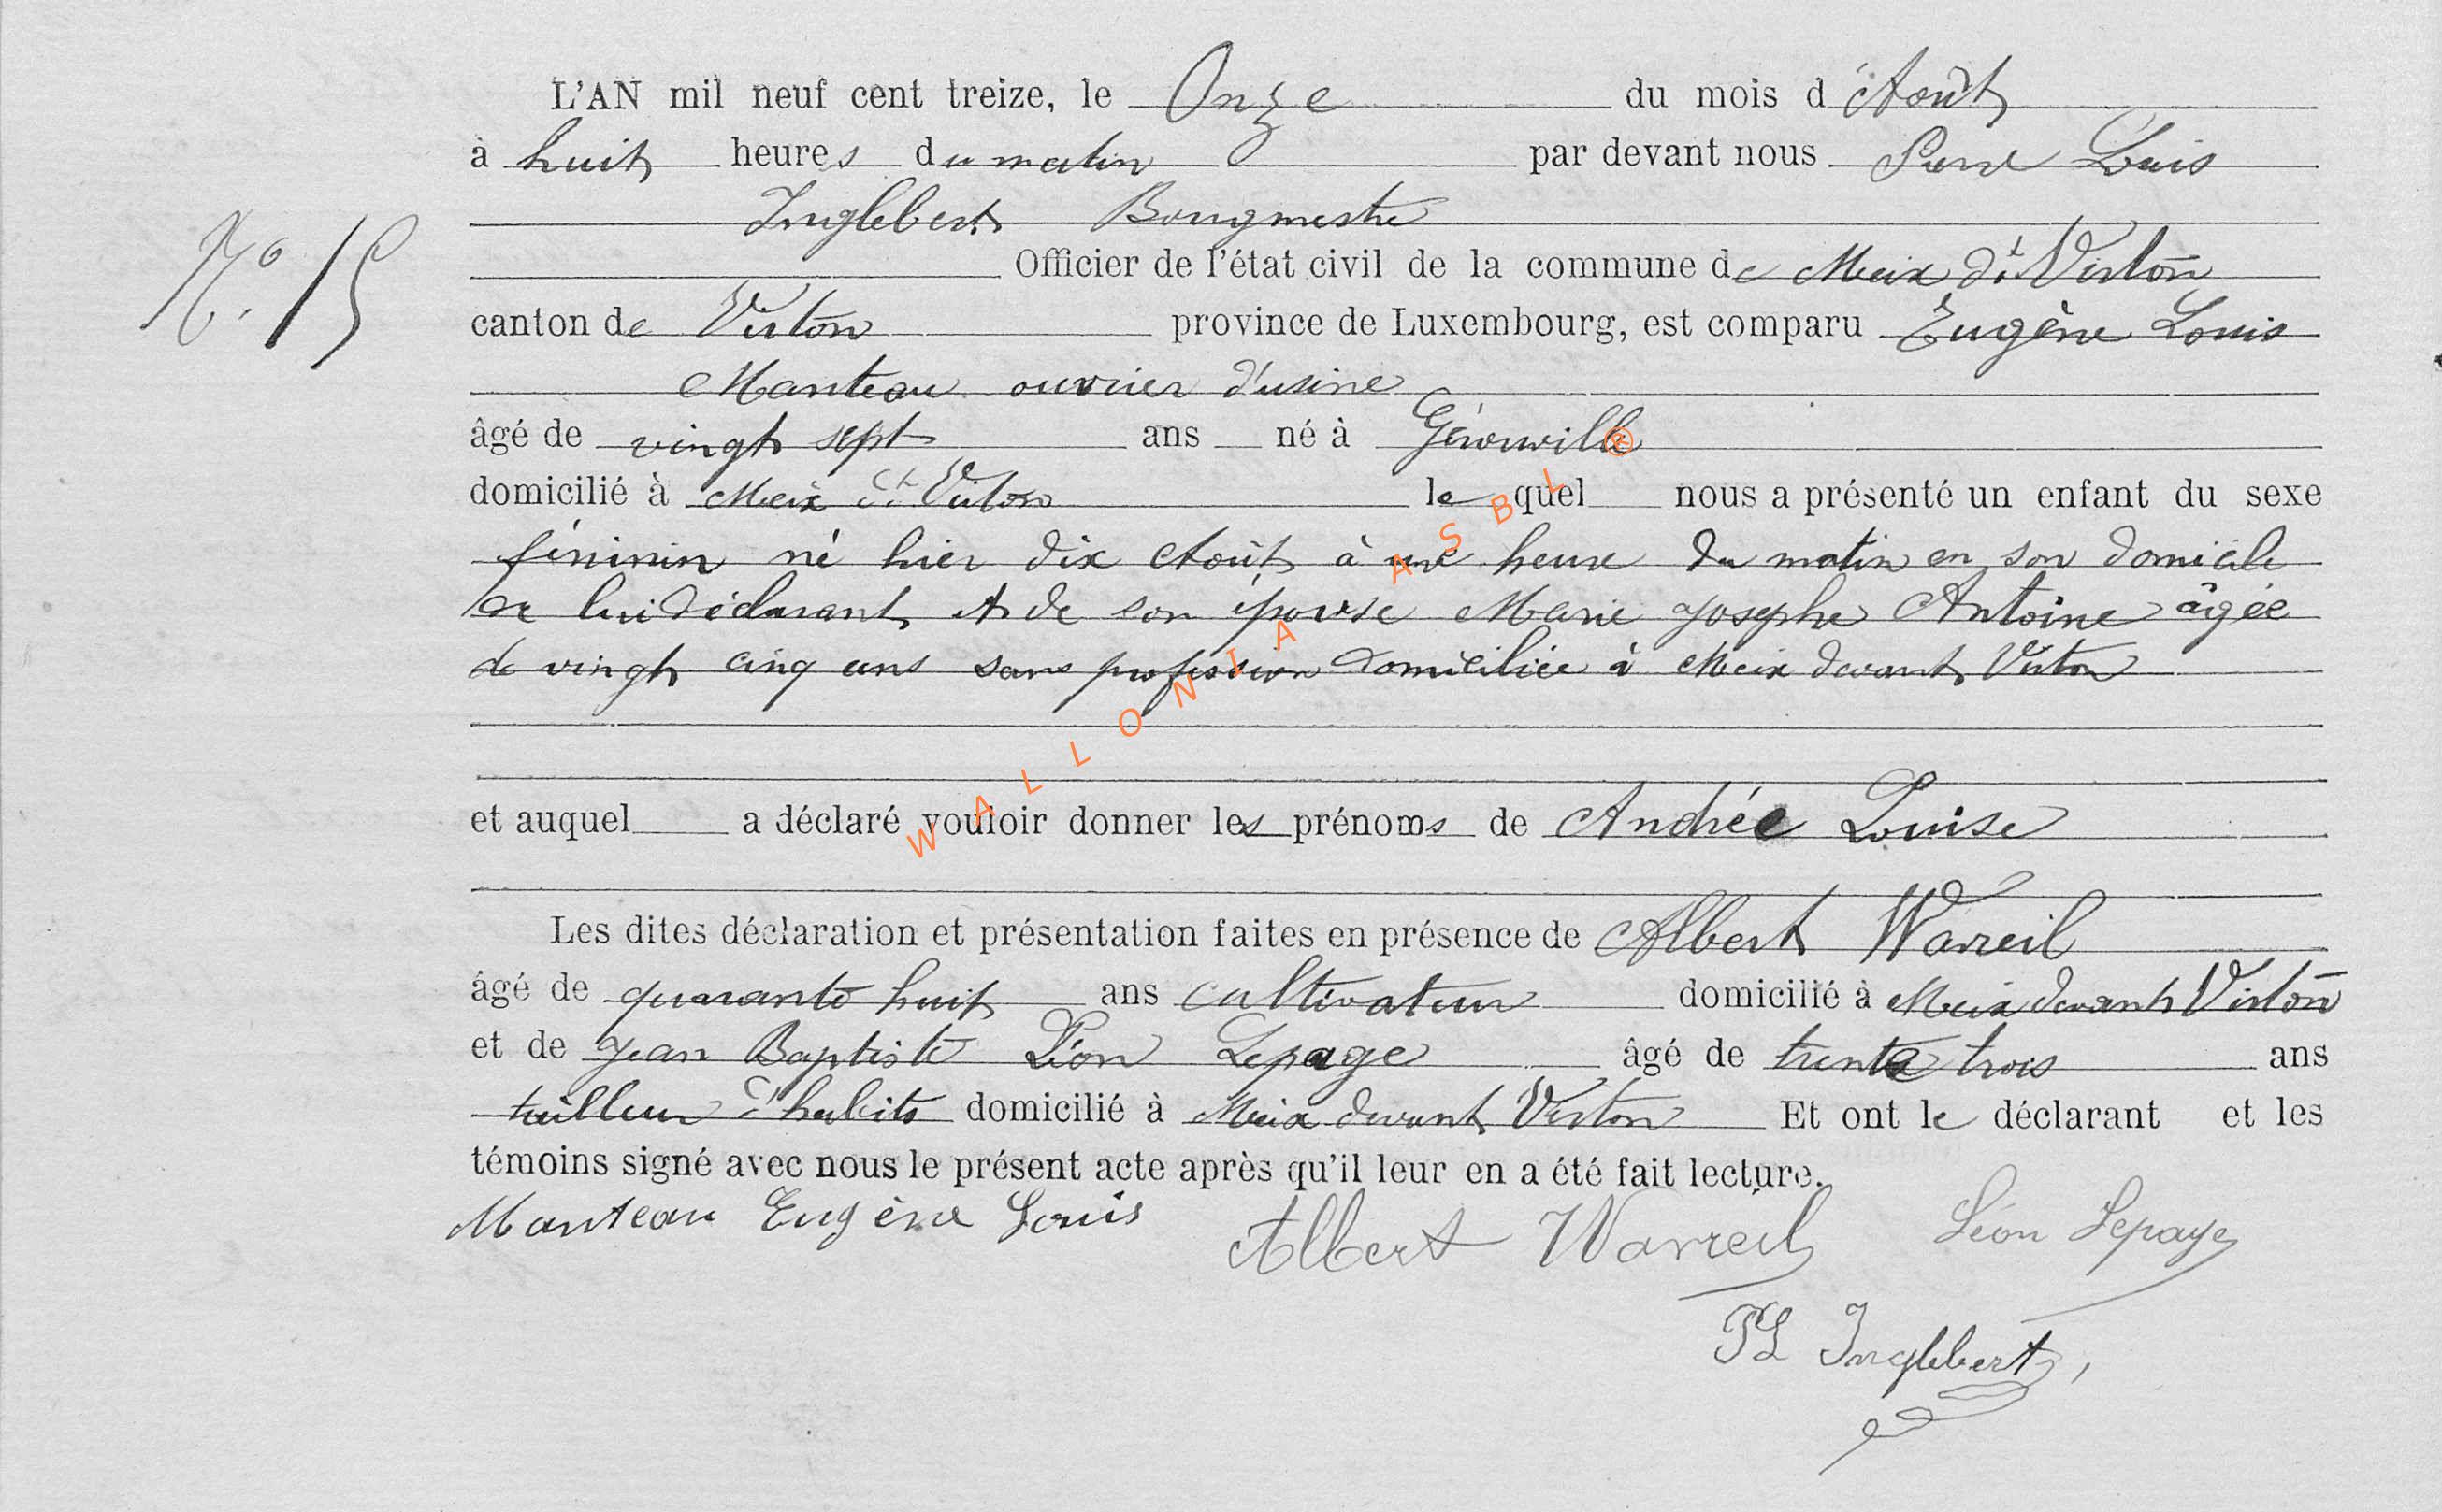 L'AN mil neuf cent treize, le Onze du mois d'Août
à huit heures du matin par devant nous Pierre Louis
Inglebert Bourgmestre
N° 15
Officier de l'état civil de la commune de Meix dt Virton
canton de Virton province de Luxembourg, est comparu Eugène Louis
Manteau ouvrier d'usine
âgé de vingt sept ans né à Gérouville
domicilié à Meix dt Virton lequel nous a présenté un enfant du sexe
féminin né hier dix Août à une heure du matin en son domicile
de lui déclarant et de son épouse Marie Josephe Antoine âgée
de vingt cinq ans sans profession domiciliée à Meix devant Virton
et auquel a déclaré vouloir donner les prénoms de Andrée Louise
Les dites déclaration et présentation faites en présence de Albert Warreil
âgé de quarante huit ans cultivateur domicilié à Meix devant Virton
et de Jean Baptiste Léon Lepage âgé de trente trois ans
tailleur d'habits domicilié à Meix devant Virton Et ont le déclarant et les
témoins signé avec nous le présent acte après qu'il leur en a été fait lecture.
Manteau Eugène Louis Albert Warreil Léon Lepage
PL Inglebert
WALLONIA ASBL ®